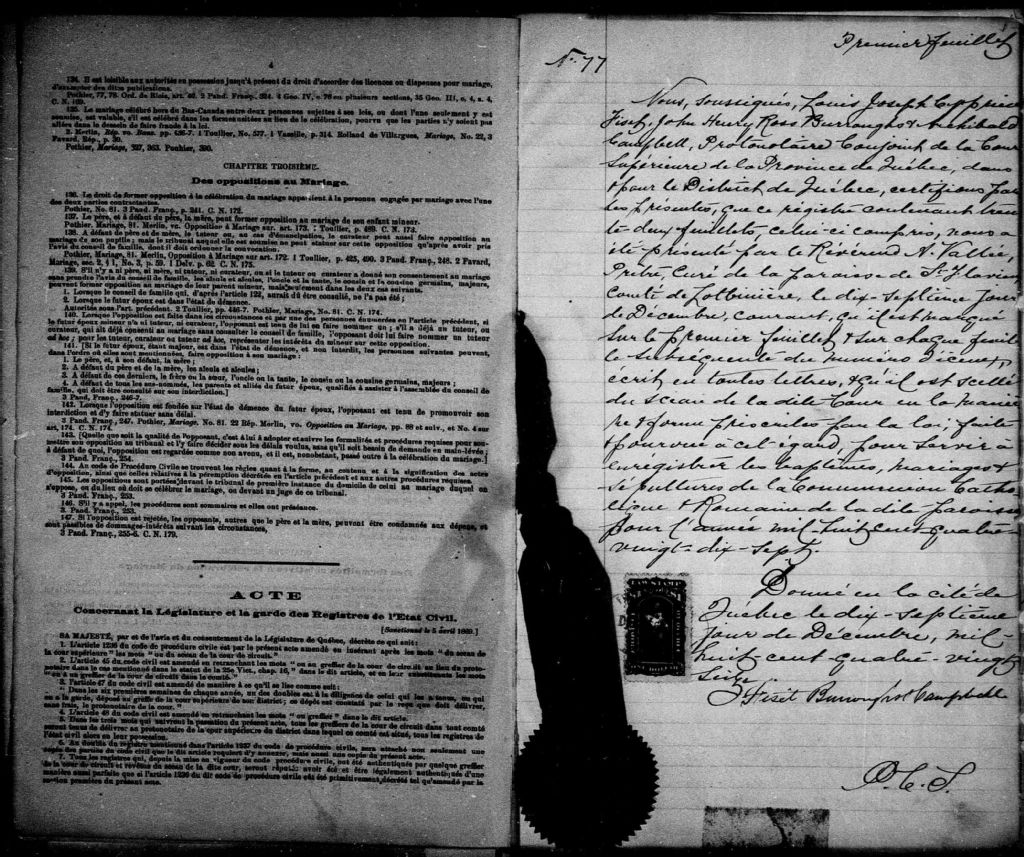 4
134. Il est loisible aux autorités en possession jusqu'à présent du droit d'accorder des licences ou dispenses pour mariage,
d'exempter des dites publications.
Pothier, 77, 78. Ord. de Blois, art. 40. 2 Pand. Franç., 324. 4 Geo. IV, c. 76 en plusieurs sections, 35 Geo. III, c. 4, s. 4,
C. N. 169.
135. Le mariage célébré hors du Bas-Canada entre deux personnes sujettes à ses lois, ou dont l'une seulement y est
soumise, est valable, s'il est célébré dans les formes usitées au lieu de la célébration, pourvu que les parties n'y soient pas
allées dans le dessein de faire fraude à la loi.
2. Merlin, Rép. vo. Bans. pp. 436-7. 1 Toullier, No. 577. 1 Vazeille, p. 314. Rolland de Villargues, Mariage, No. 22, 3
Favard, Rép., p. 30.
Pothier, Mariage, 327, 363. Pouhier, 390.
CHAPITRE TROISIÈME.
Des oppositions au Mariage.
136. Le droit de former opposition à la célébration du mariage appartient à la personne engagée par mariage avec l'une
des deux parties contractantes.
Pothier, No. 81. 3 Pand. Franç., p. 241. C. N. 172.
137. Le père, et à défaut du père, la mère, peut former opposition au mariage de son enfant mineur.
Pothier. Mariage, 81. Merlin, vr. Opposition à Mariage sur. art. 173. 1 Toullier, p. 489. C. N. 173.
138. A défaut de père et de mère, le tuteur ou, au cas d'émancipation, le curateur peut aussi faire opposition au
mariage de son pupille; mais le tribunal auquel elle est soumise ne peut statuer sur cette opposition qu'après avoir pris
l'avis du conseil de famille, dont il doit ordonner la convocation.
Pothier, Mariage, 81. Merlin, Opposition à Mariage sur art. 172. 1 Toullier, p. 425, 490. 3 Pand. Franç., 248. 2 Favard,
Mariage, sec. 2, § 1, No. 3, p. 59. 1 Delv. p. 62. C. N. 175.
139. S'il n'y a ni père, ni mère, ni tuteur, ni curateur, ou si le tuteur ou curateur a donné son consentement au mariage
sans prendre l'avis du conseil de famille, les aïeuls et aïeules, l'oncle et la tante, le cousin et la cousine germains, majeurs,
peuvent former opposition au mariage de leur parent mineur, mais seulement dans les deux cas suivants.
1. Lorsque le conseil de famille qui, d'après l'article 122, aurait dû être consulté, ne l'a pas été;
2. Lorsque le futur époux est dans l'état de démence.
Autorités sous l'art. précédent. 2 Toullier, pp. 446-7. Pothier, Mariage, No. 81. C. N. 174.
140. Lorsque l'opposition est faite dans les circonstances et par une des personnes énumérées en l'article précédent, si
le futur époux mineur n'a ni tuteur, ni curateur, l'opposant est tenu de lui en faire nommer un; s'il a déjà un tuteur, ou
curateur, qui ait déjà consenti au mariage sans consulter le conseil de famille, l'opposant doit lui faire nommer un tuteur
ad hoc; pour les tuteur, curateur ou tuteur ad hoc, représenter les intérêts du mineur sur cette opposition.
141. [Si le futur époux, étant majeur, est dans l'état de démence, et non interdit, les personnes suivantes peuvent,
dans l'ordre où elles sont mentionnées, faire opposition à son mariage:
1. Le père, et, à son défaut, la mère;
2. A défaut du père et de la mère, les aïeuls et aïeules;
3. A défaut de ces derniers, le frère ou la sœur, l'oncle ou la tante, le cousin ou la cousine germains, majeurs;
4. A défaut de tous les sus-nommés, les parents et alliés du futur époux, qualifiés à assister à l'assemblée du conseil de
famille, qui doit être consulté sur son interdiction.]
3 Pand. Franç., 246-7.
142. Lorsque l'opposition est fondée sur l'état de démence du futur époux, l'opposant est tenu de promouvoir son
interdiction et d'y faire statuer sans délai.
3 Pand. Franç., 247. Pothier, Mariage, No. 81. 22 Rép. Merlin, vo. Opposition au Mariage, pp 88 et suiv., et No. 4 sur
art. 174. C. N. 174.
143. [Quelle que soit la qualité de l'opposant, c'est à lui à adopter et suivre les formalités et procédures requises pour sou-
mettre son opposition au tribunal et l'y faire décider sous les délais voulus, sans qu'il soit besoin de demande en main-levée;
à défaut de quoi, l'opposition est regardée comme non avenu, et il est, nonobstant, passé outre à la célébration du mariage.]
3 Pand. Franç., 254.
144. Au code de Procédure Civile se trouvent les règles quant à la forme, au contenu et à la signification des actes
d'opposition, ainsi que celles relatives à la péremption décrétée en l'article précédent et aux autres procédures requises.
145. Les oppositions sont portées devant le tribunal de première instance du domicile de celui au mariage duquel on
s'oppose, ou du lieu où doit se célébrer le mariage, ou devant un juge de ce tribunal.
3 Pand. Franç., 253.
146. S'il y a appel, les procédures sont sommaires et elles ont préséance.
3. Pand. Franç., 253.
147. Si l'opposition est rejetée, les opposants, autres que le père et la mère, peuvent être condamnés aux dépens, et
sont passibles de dommages-intérêts suivant les circonstances.
3 Pand. Franç., 255-6. C. N. 179.
ACTE
Concernant la Législature et la garde des Registres de l'Etat Civil.
[Sanctionné le 5 avril 1869.]
SA MAJESTÉ, par et de l'avis et du consentement de la Législature de Québec, décrète ce qui suit:
1. L'article 1236 du code de procédure civile est par le présent acte amendé en insérant après les mots "du sceau de
la cour supérieure" les mots "ou du sceau de la cour de circuit."
2. L'article 45 du code civil est amendé en retranchant les mots "ou au greffe de la cour de circuit au lieu du proto-
3. l'article 47 du code civil est amendé de manière à ce qu'il se lise comme suit:
"Dans les six premières semaines de chaque année, un des doubles est à la diligence de celui qui les a tenus, ou qui
en a la garde, déposé au greffe de la cour supérieure de son district; ce dépôt est constaté par le reçu que doit délivrer,
sans frais, le protonotaire de la cour."
4. L'article 48 du code civil est amendé en retranchant les mots "ou greffier" dans le dit article.
5. Dans les trois mois qui suivront la passation du présent acte, tous les greffiers de la cour de circuit dans tout comté
seront tenus de délivrer au protonotaire de la cour supérieure du district dans lequel ce comté est situé, tous les registres de
l'état civil alors en leur possession.
6. Au double du registre mentionné dans l'article 1237 du code de procédure civile, sera attaché non seulement une
copie des titres du code civil que le dit article requiert d'y annexer, mais aussi une copie du présent acte.
7. Tous les registres qui, depuis la mise en vigueur du code procédure civile, ont été authentiqués par quelque greffier
de la cour de circuit et revêtus du sceau de la dite cour, seront réputés avoir été et être légalement authentiqués d'une
manière aussi parfaite que si l'article 1236 du dit code de procédure civile eût été primitivement décrété tel qu'amendé par la
section première du présent acte.
Premier feuillet
No. 77
Nous, soussignés, Louis Joseph Cyprien
Fiset, John Henry Ross Burroughs & Archibald
Campbell, Protonotaire Conjoint de la Cour
Supérieure de la Province de Québec, dans
& pour le District de Québec, certifions par
les présentes, que ce régistre contenant tren
te deux feuillets celui-ci compris, nous a
été présenté par le Révérend A. Vallée,
Prêtre Curé de la paroisse de St. Flavien
Comté de Lotbinière, le dix-septième jour
de Décembre, courant, qu'il est marqué
sur le premier feuillet & sur chaque feuille
le subséquente du numéro d'icenx,
écrit en toutes lettres, & qu'il est scellé
du sceau de la dite Cour en la maniè
re & forme prescrites par la loi, faite
& pourvue à cet égard, pour servir à
enrégistrer les baptêmes, mariages &
sépultures de la Communion Catho
lique & Romaine de la dite Paroisse
pour l'année mil-huit cent-quatre-
vingt-dix-sept.
Donné en la cité de
Québec le dix-septième
jour de Décembre, mil-
huit-cent-quatre-vingt
seize
Fiset Burroughs & Campbell
P. C. S.
LAW STAMP